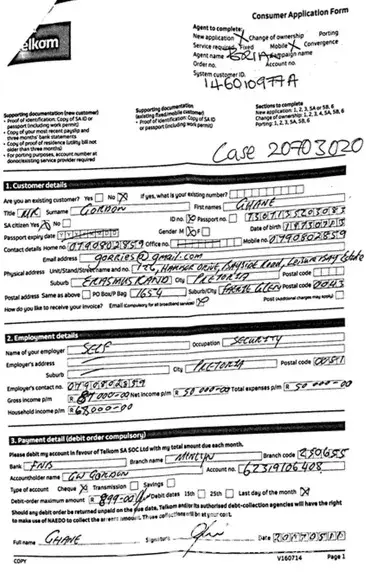 Consumer Application Form
elkom
Agent to complete:
New application X Change of ownership Porting
Service required Fixed Mobile Convergence
Agent Campaign name
Order no. Account no.
System customer ID.
146010977A
Supporting documentation (new customer)
• Proof of identification: Copy of SA ID or passport (including work permit)
• Copy of your most recent payslip and three months' bank statements
• Copy of proof of residence (utility bill not older than three months)
• For porting purposes, account number at donor/existing service provider required
Supporting documentation (existing fixed/mobile customer)
• Proof of identification: Copy of SA ID or passport (including work permit)
Sections to complete
New application: 1, 2, 3, 5A or 5B, 6
Change of ownership: 1, 2, 4, 5A, 5B, 6
Porting: 1, 2, 3, 5A, 5B, 6
Case 20703020
1. Customer details
Are you an existing customer? Yes No X If yes, what is your existing number?
Title MR Surname GORDON First names GHANE
SA citizen Yes X No ID no. X Passport no.
Passport expiry date Gender M X F Date of birth
Contact details Home no. 0790802859 Office no. Mobile no. 0790802859
Email address gorries@gmail.com
Physical address Unit/Stand/Street name and no. HARBOR DRIVE, BAYSIDE Road,
Suburb ERASMUS RAND City PRETORIA Postal code
Postal address Same as above PO Box/P Bag 1654 Suburb/City GLEN Postal code 0043
How do you like to receive your invoice? Email (Compulsory for all broadband services) X Post (Additional charges may apply)
2. Employment details
Name of your employer SELF Occupation SECURITY
Employer's address
Suburb City PRETORIA Postal code 0081
Employer's contact no. 0790802859
Gross income p/m R Net income p/m R Total expenses p/m R
Household income p/m R 68000-00
3. Payment detail (debit order compulsory)
Please debit my account in favour of Telkom SA SOC Ltd with my total amount due each month.
Bank FNB Branch name MENLYN Branch code 250655
Accountholder name GW GORDON Account no. 62319106408
Type of account Cheque X Transmission Savings
Debit-order maximum amount R 899-00 Debit dates 15th 25th Last day of the month X
Should any debit order be returned unpaid on the due date, Telkom and/or its authorised debt-collection agencies will have the right
to make use of NAEDO to collect the arrears amount. These collections will be at your cost.
Full name GHANE Signature Date
COPY V160714 Page 1